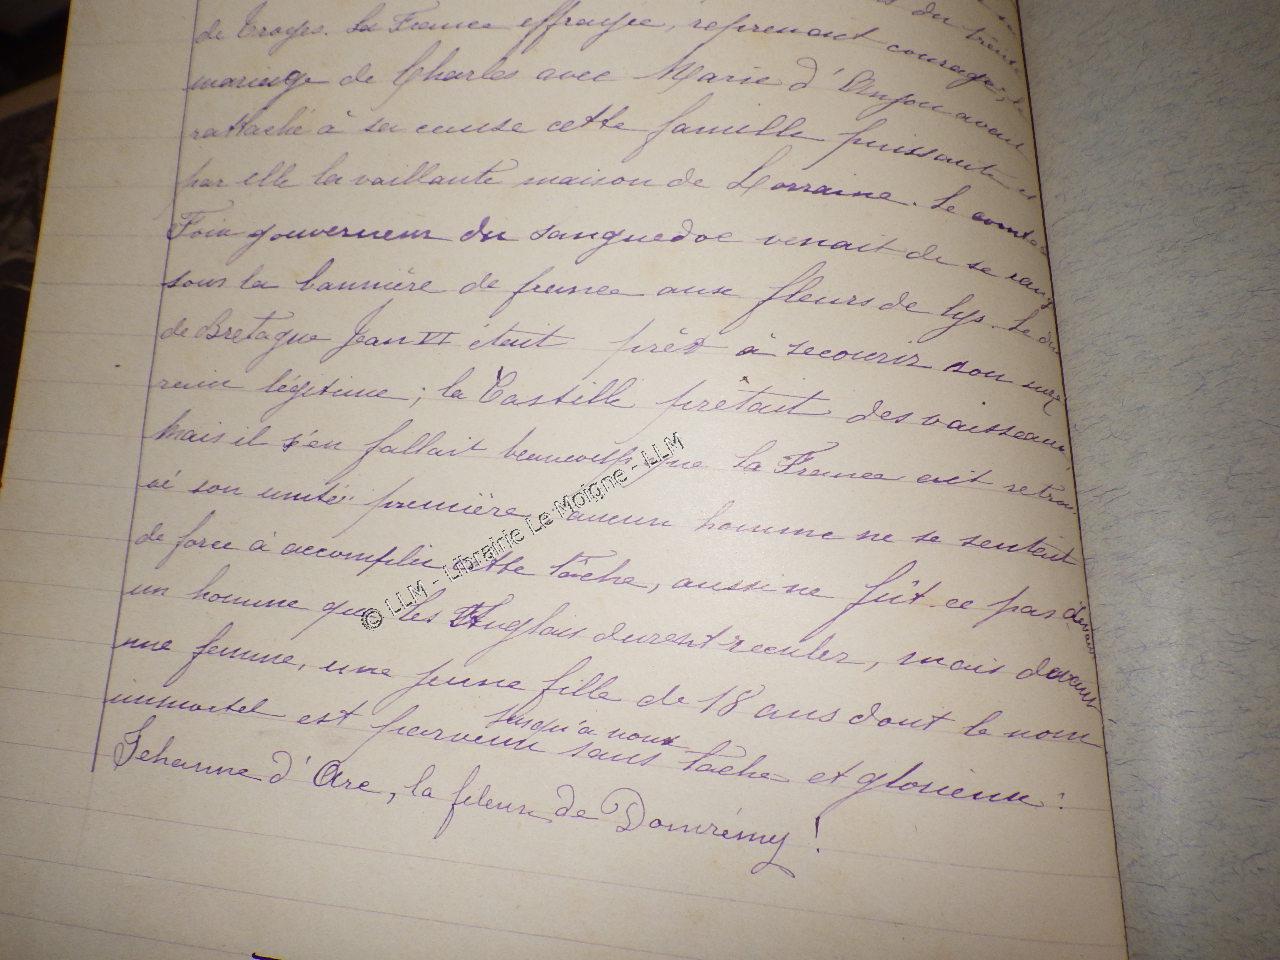 du trône
de Troyes. La France effrayée, reprenait courage; le
mariage de Charles avec Marie d'Anjou avait
rattaché à sa cause cette famille puissante et
par elle la vaillante maison de Lorraine. Le comte de
Foix gouverneur du Languedoc venait de se rang
sous la bannière de france aux fleurs de lys. Le duc
de Bretagne Jean VI était prêt à secourir son suze
rain légitime; la Castille prêtait des vaisseaux,
Mais il s'en fallait beaucoup que la France eût retrou
vé son unité première, aucun homme ne se sentait
de force à accomplir cette tâche, aussi ne fût ce pas devant
un homme que les Anglais durent reculer, mais devant
une femme, une jeune fille de 18 ans dont le nom
jusqu'à nous
immortel est parvenu sans tache et glorieux:
Jehanne d'Arc, la fleur de Domrémy!
© LLM - Librairie Le Moigne - LLM